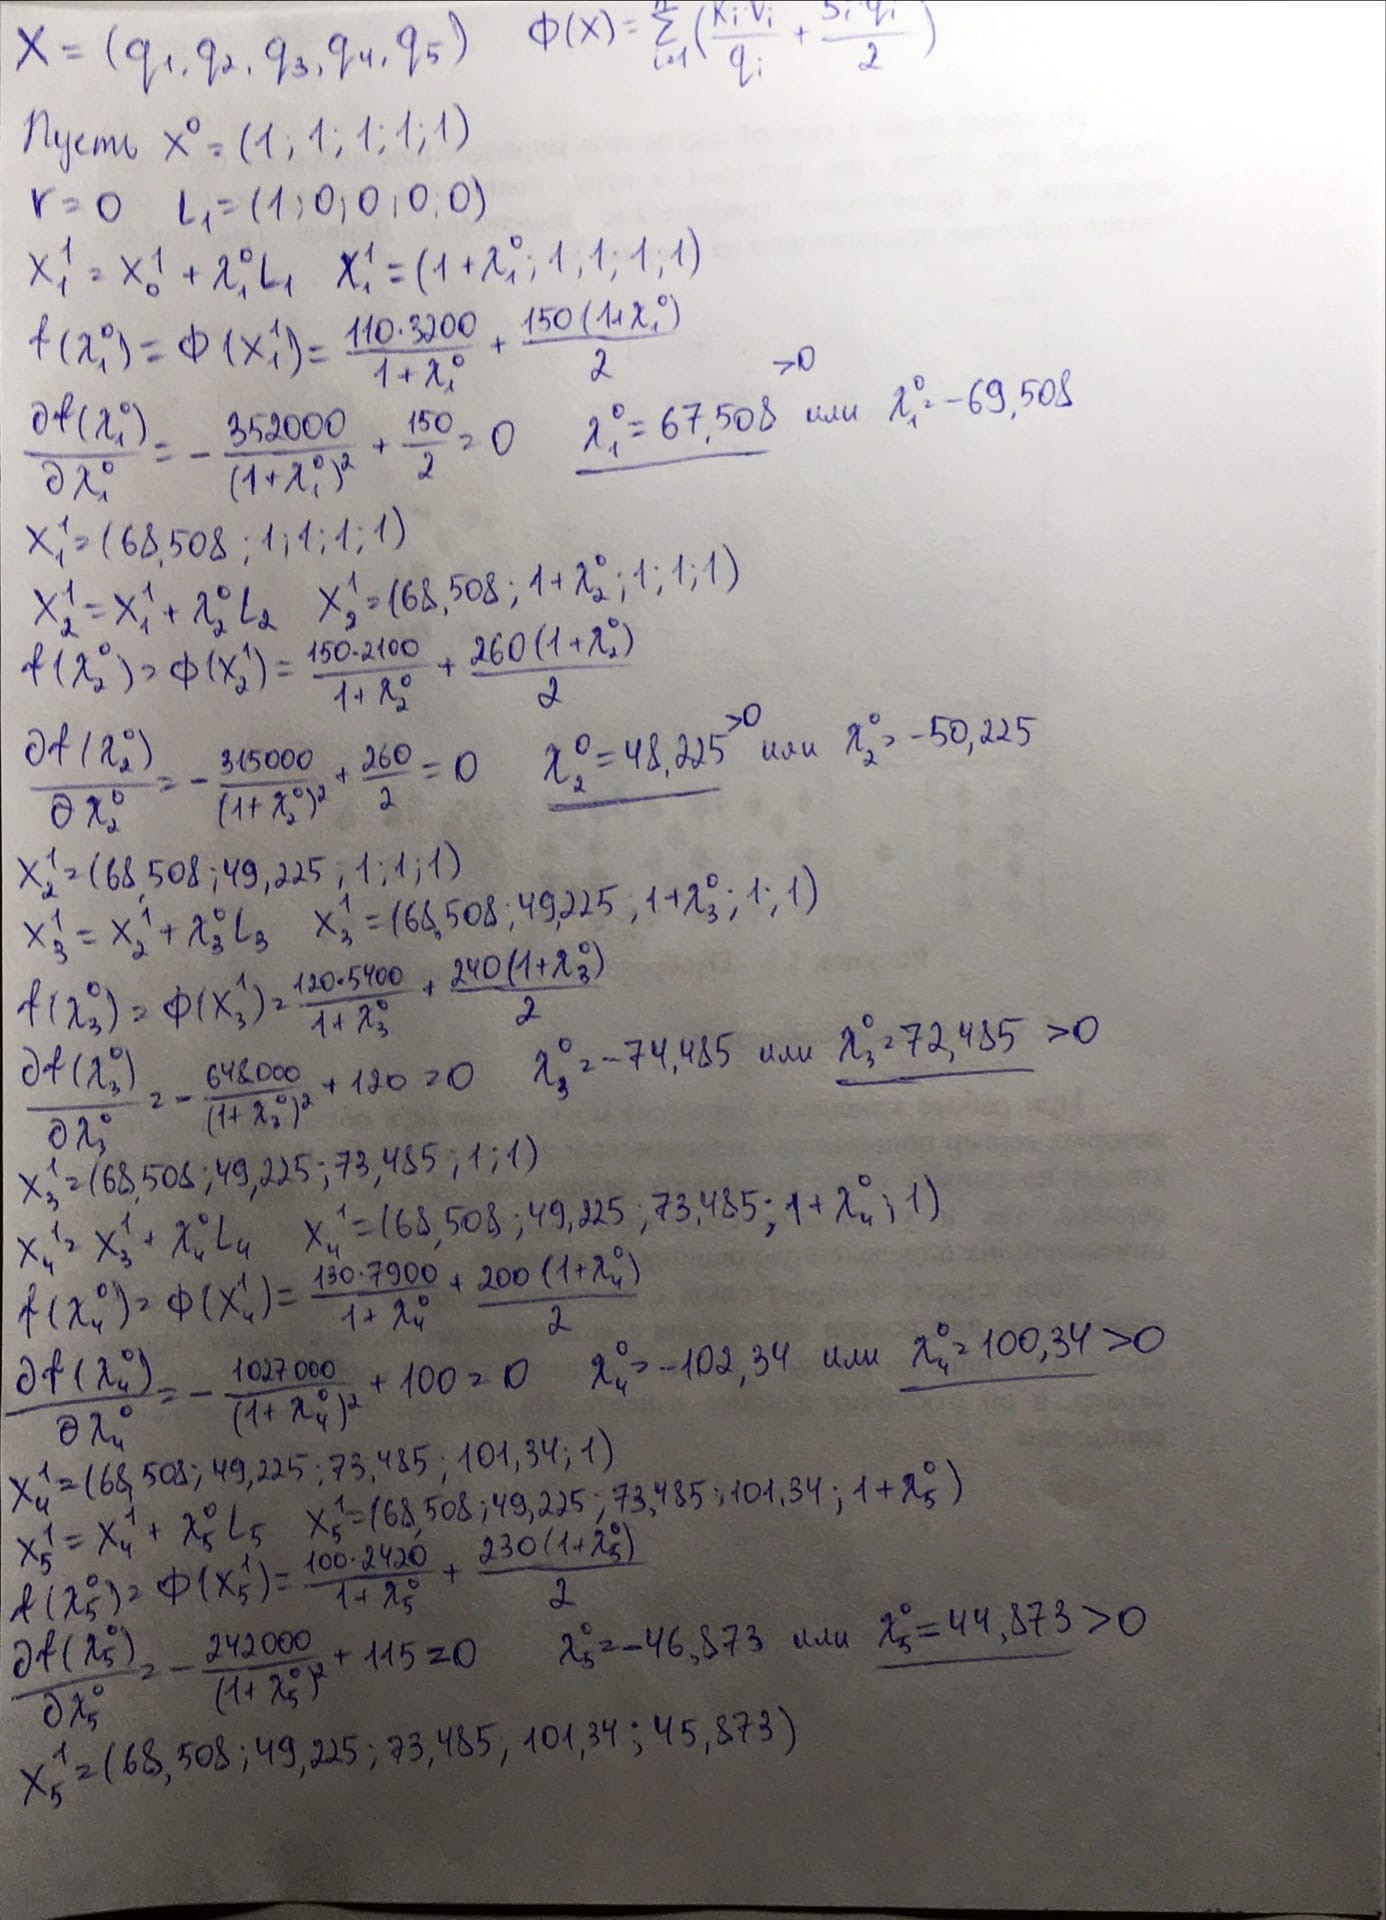 X = (q₁, q₂, q₃, q₄, q₅) Ф(X) = Σⁿᵢ₌₁ (Kᵢ·Vᵢ/qᵢ + Sᵢ·qᵢ/2)
Пусть X⁰ = (1; 1; 1; 1; 1)
r = 0 L₁ = (1; 0; 0; 0; 0)
X₁¹ = X₀¹ + λ₁⁰L₁ X₁¹ = (1+λ₁⁰; 1; 1; 1; 1)
f(λ₁⁰) = Ф(X₁¹) = 110·3200/(1+λ₁⁰) + 150(1+λ₁⁰)/2
∂f(λ₁⁰)/∂λ₁⁰ = - 352000/(1+λ₁⁰)² + 150/2 = 0 λ₁⁰ = 67,508 >0 или λ₁⁰ = -69,508
X₁¹ = (68,508; 1; 1; 1; 1)
X₂¹ = X₁¹ + λ₂⁰L₂ X₂¹ = (68,508; 1+λ₂⁰; 1; 1; 1)
f(λ₂⁰) = Ф(X₂¹) = 150·2100/(1+λ₂⁰) + 260(1+λ₂⁰)/2
∂f(λ₂⁰)/∂λ₂⁰ = - 315000/(1+λ₂⁰)² + 260/2 = 0 λ₂⁰ = 48,225 >0 или λ₂⁰ = -50,225
X₂¹ = (68,508; 49,225; 1; 1; 1)
X₃¹ = X₂¹ + λ₃⁰L₃ X₃¹ = (68,508; 49,225; 1+λ₃⁰; 1; 1)
f(λ₃⁰) = Ф(X₃¹) = 120·5400/(1+λ₃⁰) + 240(1+λ₃⁰)/2
∂f(λ₃⁰)/∂λ₃⁰ = - 648000/(1+λ₃⁰)² + 120 = 0 λ₃⁰ = -74,485 или λ₃⁰ = 72,485 >0
X₃¹ = (68,508; 49,225; 73,485; 1; 1)
X₄¹ = X₃¹ + λ₄⁰L₄ X₄¹ = (68,508; 49,225; 73,485; 1+λ₄⁰; 1)
f(λ₄⁰) = Ф(X₄¹) = 130·7900/(1+λ₄⁰) + 200(1+λ₄⁰)/2
∂f(λ₄⁰)/∂λ₄⁰ = - 1027000/(1+λ₄⁰)² + 100 = 0 λ₄⁰ = -102,34 или λ₄⁰ = 100,34 >0
X₄¹ = (68,508; 49,225; 73,485; 101,34; 1)
X₅¹ = X₄¹ + λ₅⁰L₅ X₅¹ = (68,508; 49,225; 73,485; 101,34; 1+λ₅⁰)
f(λ₅⁰) = Ф(X₅¹) = 100·2420/(1+λ₅⁰) + 230(1+λ₅⁰)/2
∂f(λ₅⁰)/∂λ₅⁰ = - 242000/(1+λ₅⁰)² + 115 = 0 λ₅⁰ = -46,873 или λ₅⁰ = 44,873 >0
X₅¹ = (68,508; 49,225; 73,485; 101,34; 45,873)